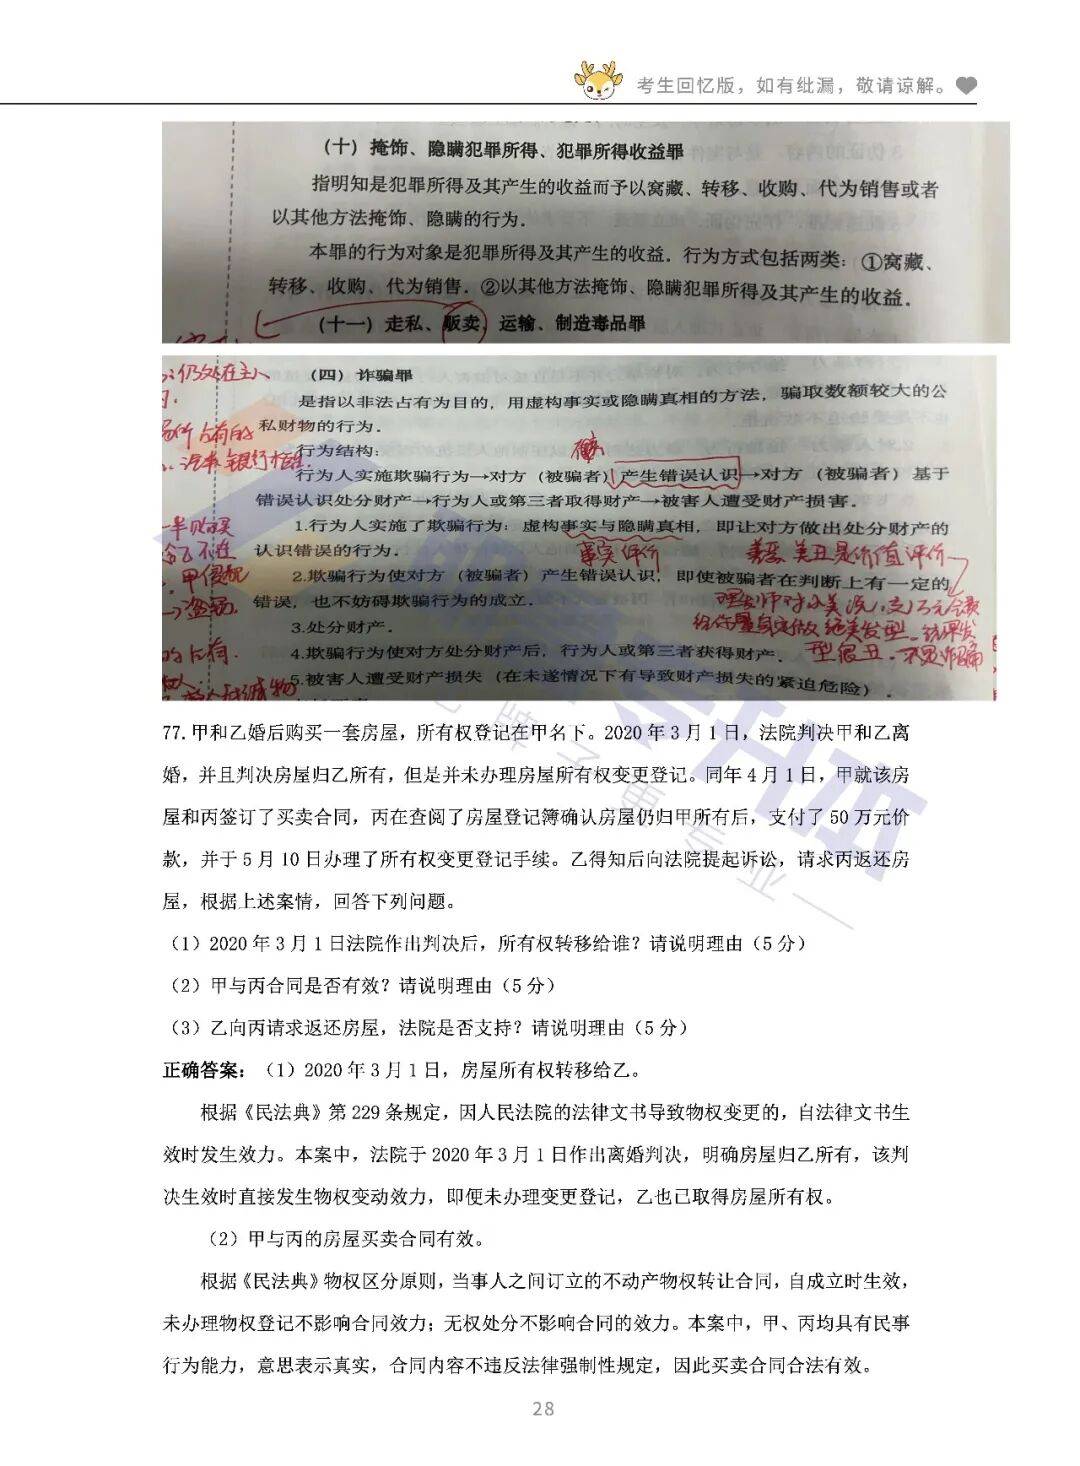 考生回忆版，如有纰漏，敬请谅解。
（十）掩饰、隐瞒犯罪所得、犯罪所得收益罪
指明知是犯罪所得及其产生的收益而予以窝藏、转移、收购、代为销售或者
以其他方法掩饰、隐瞒的行为.
本罪的行为对象是犯罪所得及其产生的收益. 行为方式包括两类：①窝藏、
转移、收购、代为销售. ②以其他方法掩饰、隐瞒犯罪所得及其产生的收益.
（十一）走私、贩卖、运输、制造毒品罪
仍处在主人
（四）诈骗罪
是指以非法占有为目的，用虚构事实或隐瞒真相的方法，骗取数额较大的公
私财物的行为.
行为结构：
行为人实施欺骗行为→对方（被骗者）产生错误认识→对方（被骗者）基于
错误认识处分财产→行为人或第三者取得财产→被害人遭受财产损害.
1.行为人实施了欺骗行为：虚构事实与隐瞒真相，即让对方做出处分财产的
认识错误的行为.
事实 评价
美恶、美丑是价值评价
2.欺骗行为使对方（被骗者）产生错误认识，即使被骗者在判断上有一定的
错误，也不妨碍欺骗行为的成立.
3.处分财产.
4.欺骗行为使对方处分财产后，行为人或第三者获得财产.
型很丑，不是诈骗
5.被害人遭受财产损失（在未遂情况下有导致财产损失的紧迫危险）.
77.甲和乙婚后购买一套房屋，所有权登记在甲名下。2020年3月1日，法院判决甲和乙离
婚，并且判决房屋归乙所有，但是并未办理房屋所有权变更登记。同年4月1日，甲就该房
屋和丙签订了买卖合同，丙在查阅了房屋登记簿确认房屋仍归甲所有后，支付了50万元价
款，并于5月10日办理了所有权变更登记手续。乙得知后向法院提起诉讼，请求丙返还房
屋，根据上述案情，回答下列问题。
（1）2020年3月1日法院作出判决后，所有权转移给谁？请说明理由（5分）
（2）甲与丙合同是否有效？请说明理由（5分）
（3）乙向丙请求返还房屋，法院是否支持？请说明理由（5分）
正确答案：（1）2020年3月1日，房屋所有权转移给乙。
根据《民法典》第229条规定，因人民法院的法律文书导致物权变更的，自法律文书生
效时发生效力。本案中，法院于2020年3月1日作出离婚判决，明确房屋归乙所有，该判
决生效时直接发生物权变动效力，即便未办理变更登记，乙也已取得房屋所有权。
（2）甲与丙的房屋买卖合同有效。
根据《民法典》物权区分原则，当事人之间订立的不动产物权转让合同，自成立时生效，
未办理物权登记不影响合同效力；无权处分不影响合同的效力。本案中，甲、丙均具有民事
行为能力，意思表示真实，合同内容不违反法律强制性规定，因此买卖合同合法有效。
28